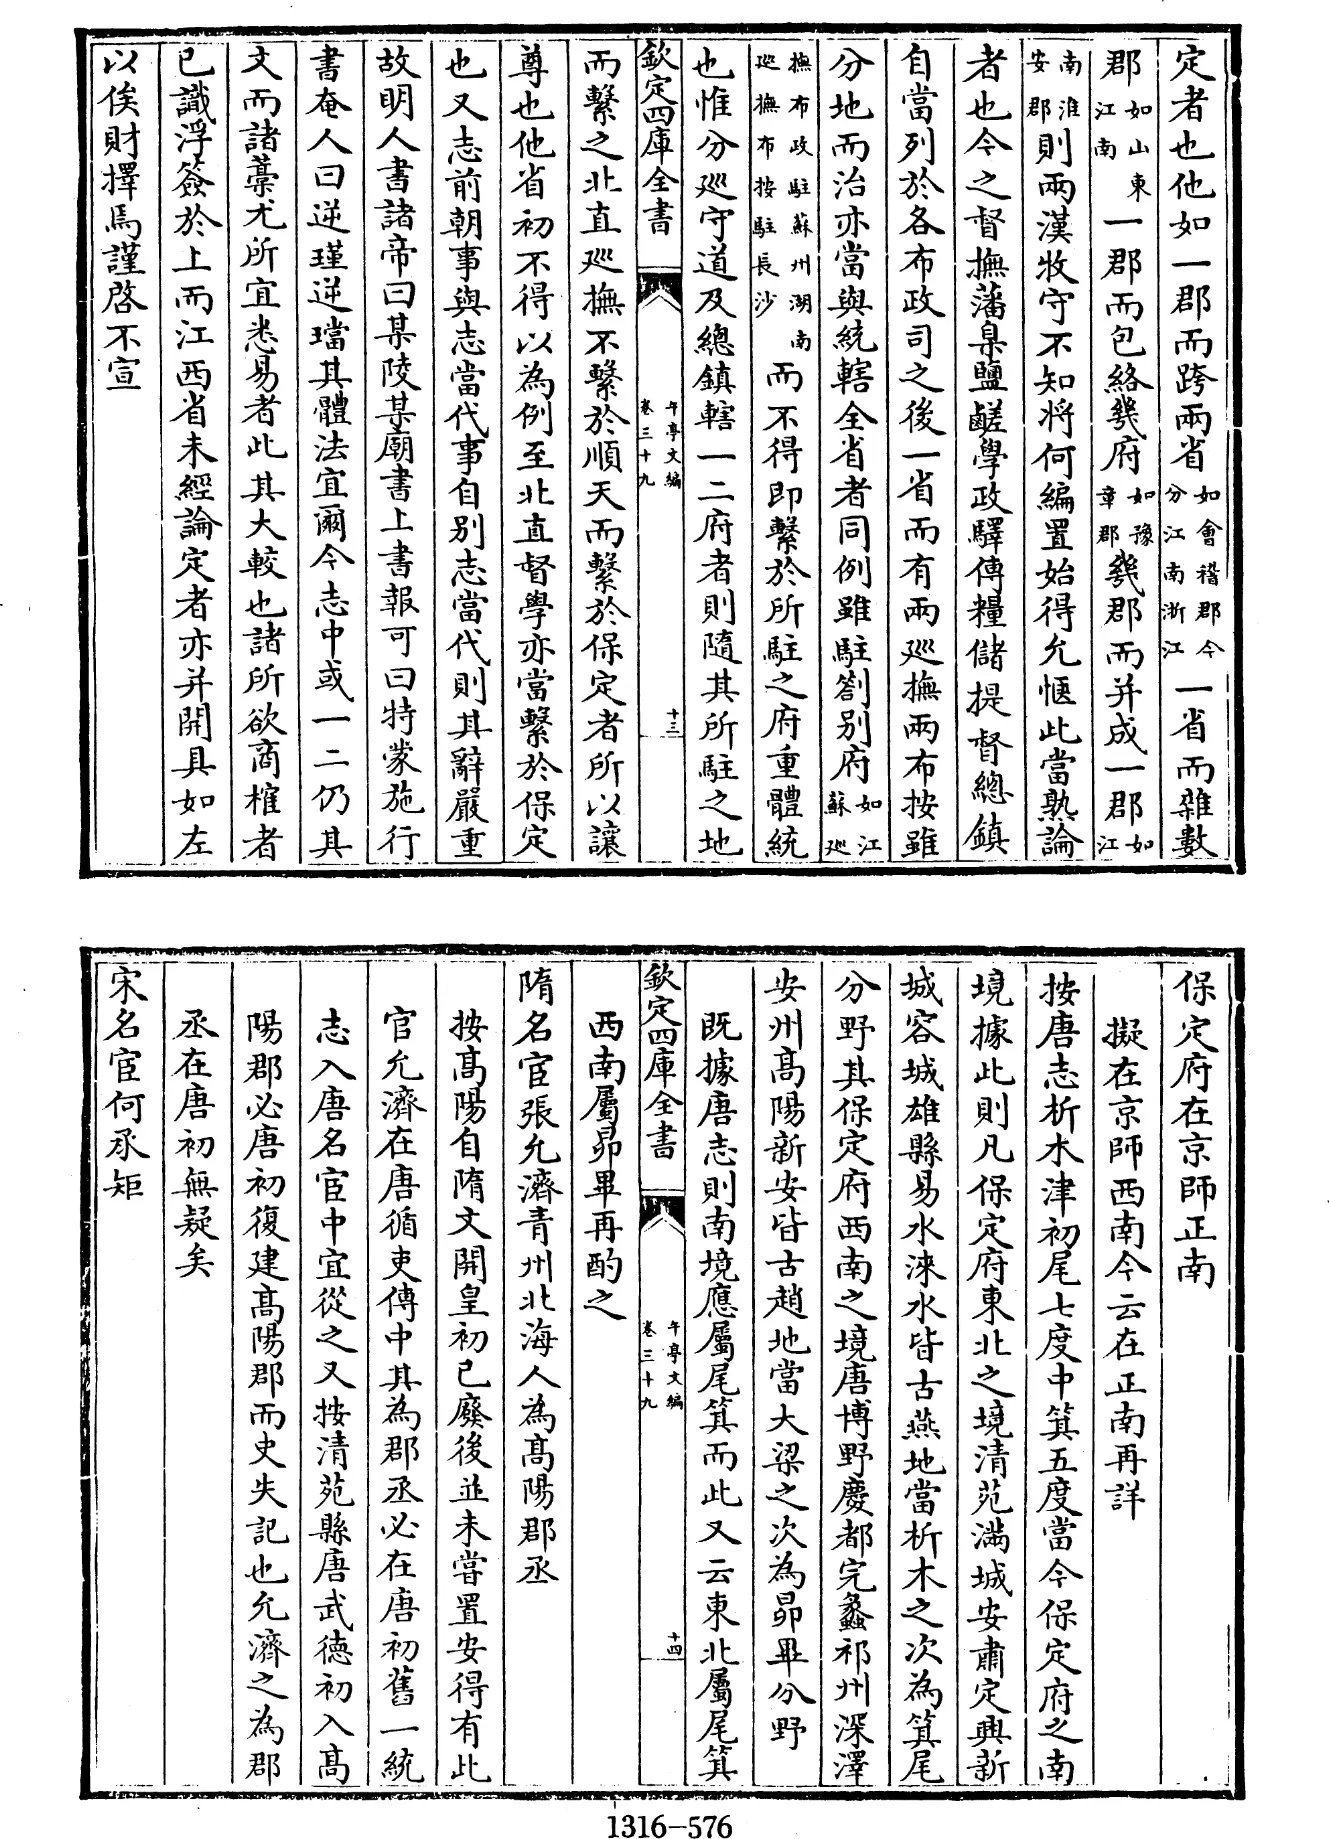 定者也他如一郡而跨兩省如會稽郡今分江南浙江一省而雜數
郡如山東江南一郡而包絡幾府如豫章郡幾郡而并成一郡如江
南淮安郡則兩漢牧守不知將何編置始得允愜此當熟論
者也今之督撫藩臬鹽鹺學政驛傳糧儲提督總鎮
自當列於各布政司之後一省而有兩巡撫兩布按雖
分地而治亦當與統轄全省者同例雖駐劄别府如江蘇巡
撫布政駐蘇州湖南巡撫布按駐長沙而不得即繫於所駐之府重體統
也惟分巡守道及總鎮轄一二府者則隨其所駐之地
欽定四庫全書
午亭文編
卷三十九
十三
而繫之北直巡撫不繫於順天而繫於保定者所以讓
尊也他省初不得以為例至北直督學亦當繫於保定
也又志前朝事與志當代事自别志當代則其辭嚴重
故明人書諸帝曰某陵某廟書上書報可曰特蒙施行
書奄人曰逆瑾逆璫其體法宜爾今志中或一二仍其
文而諸藁尤所宜悉易者此其大較也諸所欲商榷者
已識浮簽於上而江西省未經論定者亦并開具如左
以俟財擇焉謹啓不宣
保定府在京師正南
擬在京師西南今云在正南再詳
按唐志析木津初尾七度中箕五度當今保定府之南
境據此則凡保定府東北之境清苑滿城安肅定興新
城容城雄縣易水淶水皆古燕地當析木之次為箕尾
分野其保定府西南之境唐博野慶都完蠡祁州深澤
安州高陽新安皆古趙地當大梁之次為昴畢分野
既據唐志則南境應屬尾箕而此又云東北屬尾箕
欽定四庫全書
午亭文編
卷三十九
十四
西南屬昴畢再酌之
隋名宦張允濟青州北海人為高陽郡丞
按高陽自隋文開皇初已廢後並未嘗置安得有此
官允濟在唐循吏傳中其為郡丞必在唐初舊一統
志入唐名宦中宜從之又按清苑縣唐武德初入高
陽郡必唐初復建高陽郡而史失記也允濟之為郡
丞在唐初無疑矣
宋名宦何承矩
1316-576